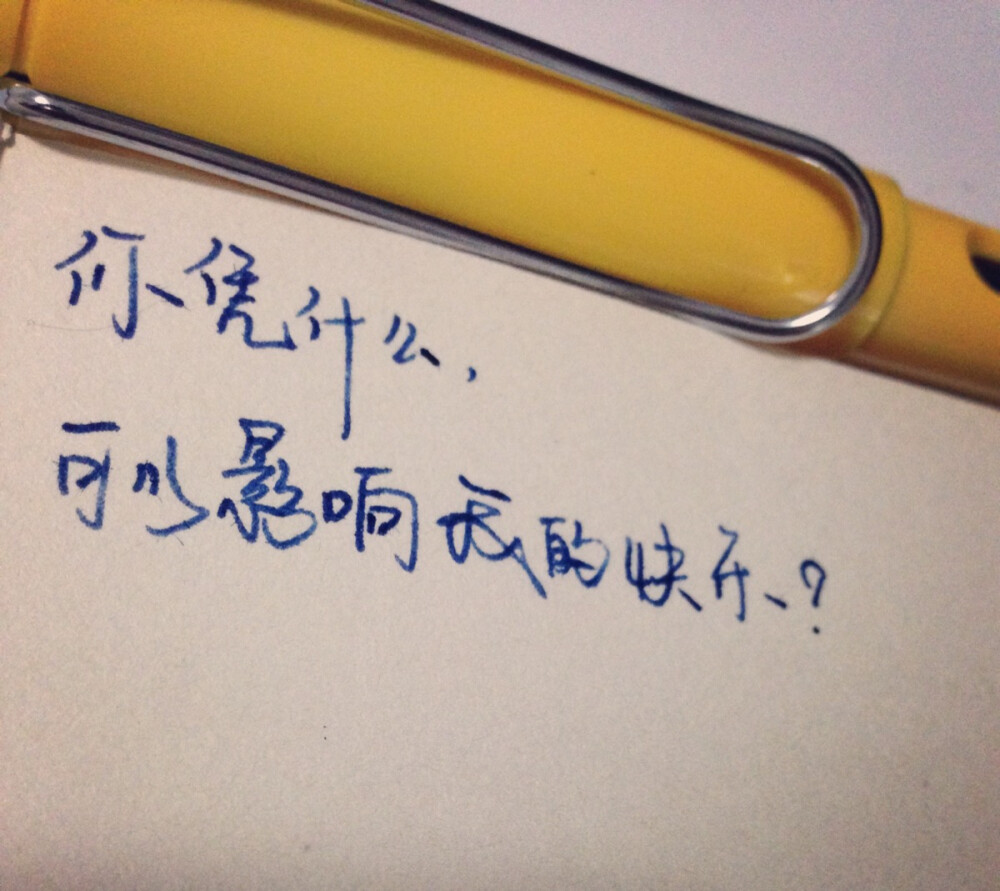 你凭什么,
可以影响我的快乐?